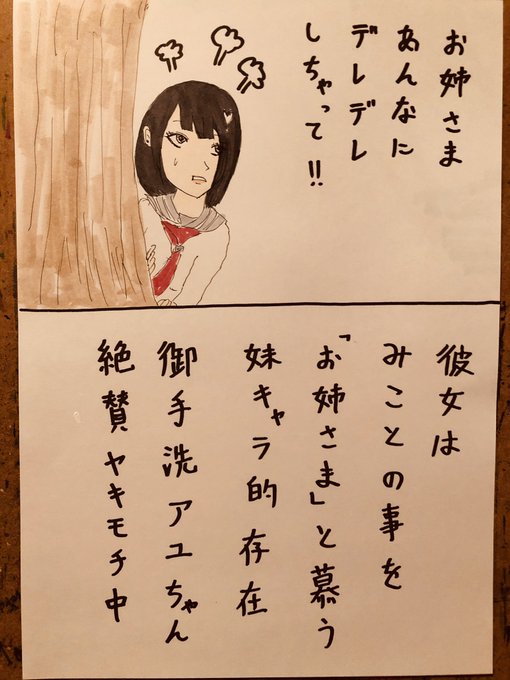 お姉さま
あんなに
デレデレ
しちゃって!!
彼女は
みことの事を
「お姉さま」と慕う
妹キャラ的存在
御手洗アユちゃん
絶賛ヤキモチ中